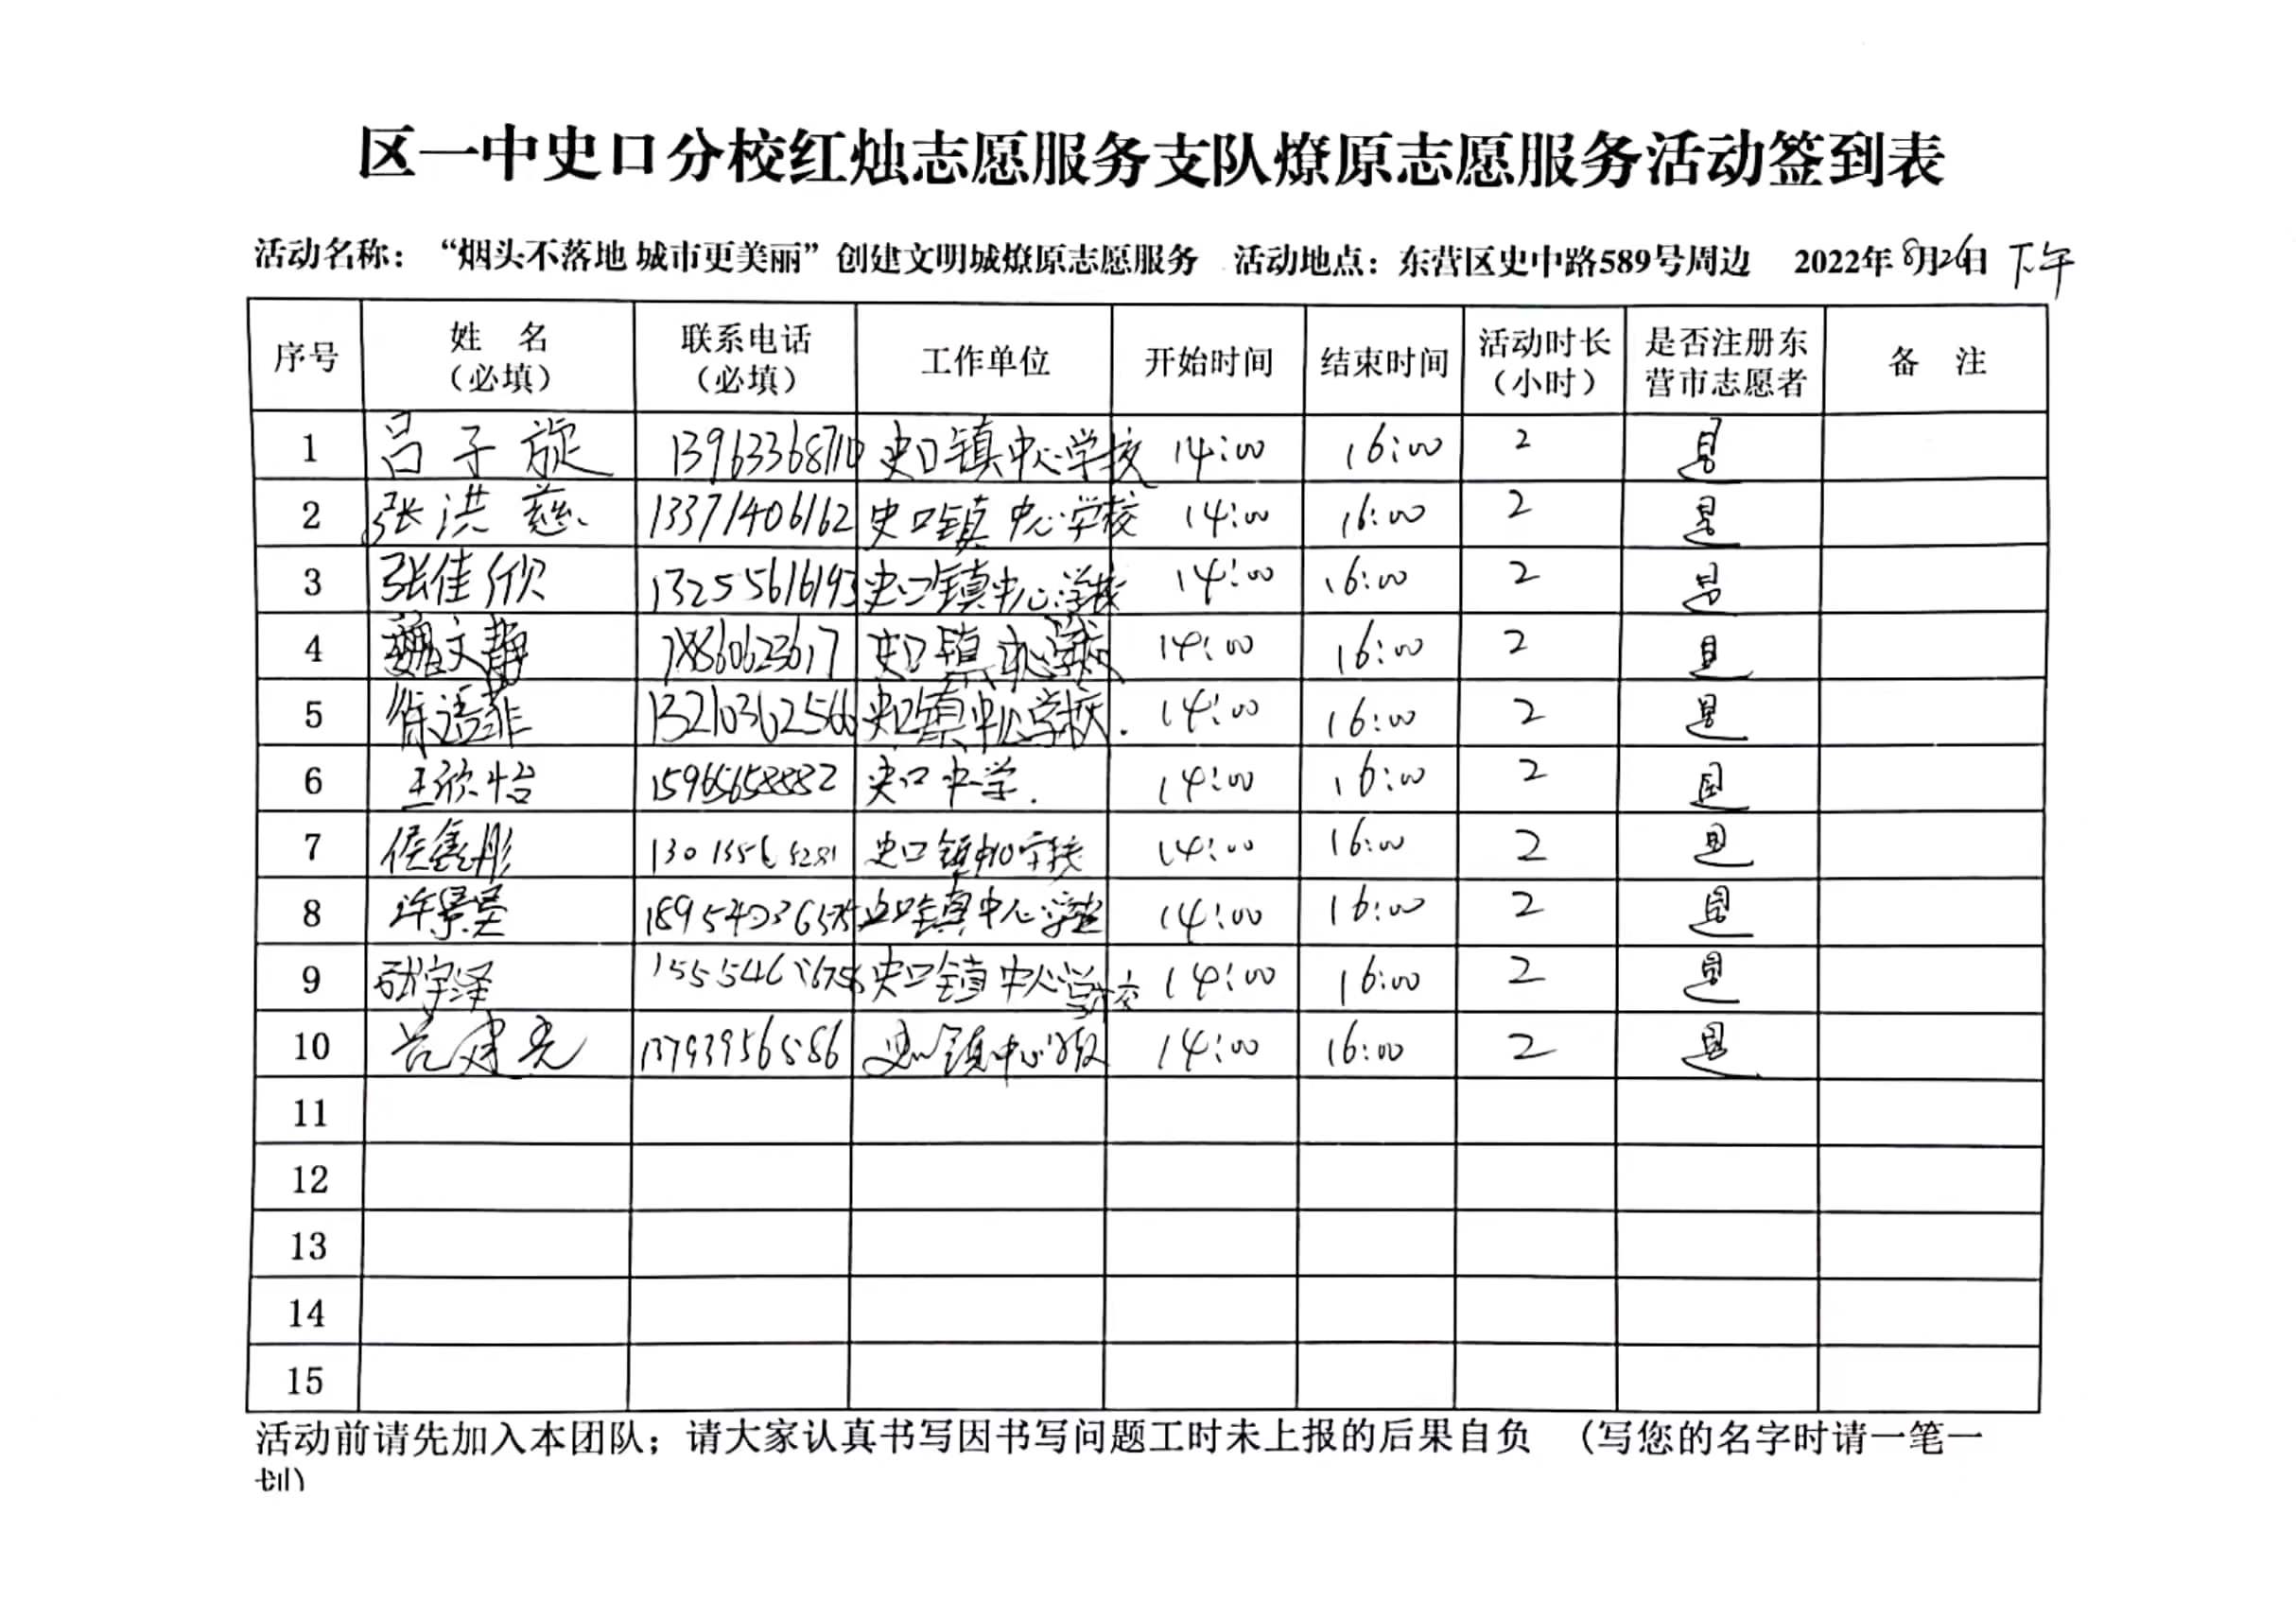 区一中史口分校红烛志愿服务支队燎原志愿服务活动签到表
活动名称：“烟头不落地 城市更美丽”创建文明城燎原志愿服务 活动地点：东营区史中路589号周边 2022年8月26日 下午
序号 姓名（必填） 联系电话（必填） 工作单位 开始时间 结束时间 活动时长（小时） 是否注册东营市志愿者 备注
1 吕子旋 史口镇中心学校 14:00 16:00 2 是
2 张洪慈 13371406162 史口镇中心学校 14:00 16:00 2 是
3 张佳欣 13255616193 史口镇中心学校 14:00 16:00 2 是
4 魏文静 史口镇中心学校 14:00 16:00 2 是
5 徐语菲 13210362566 史口镇中心学校. 14:00 16:00 2 是
6 王欣怡 15965658882 史口中学. 14:00 16:00 2 是
7 侯鑫彤 史口镇中心学校 14:00 16:00 2 是
8 许景昊 史口镇中心学校 14:00 16:00 2 是
9 张宇泽 史口镇中心学校 14:00 16:00 2 是
10 13793956586 史口镇中心学校 14:00 16:00 2 是
11
12
13
14
15
活动前请先加入本团队；请大家认真书写因书写问题工时未上报的后果自负 （写您的名字时请一笔一
划）